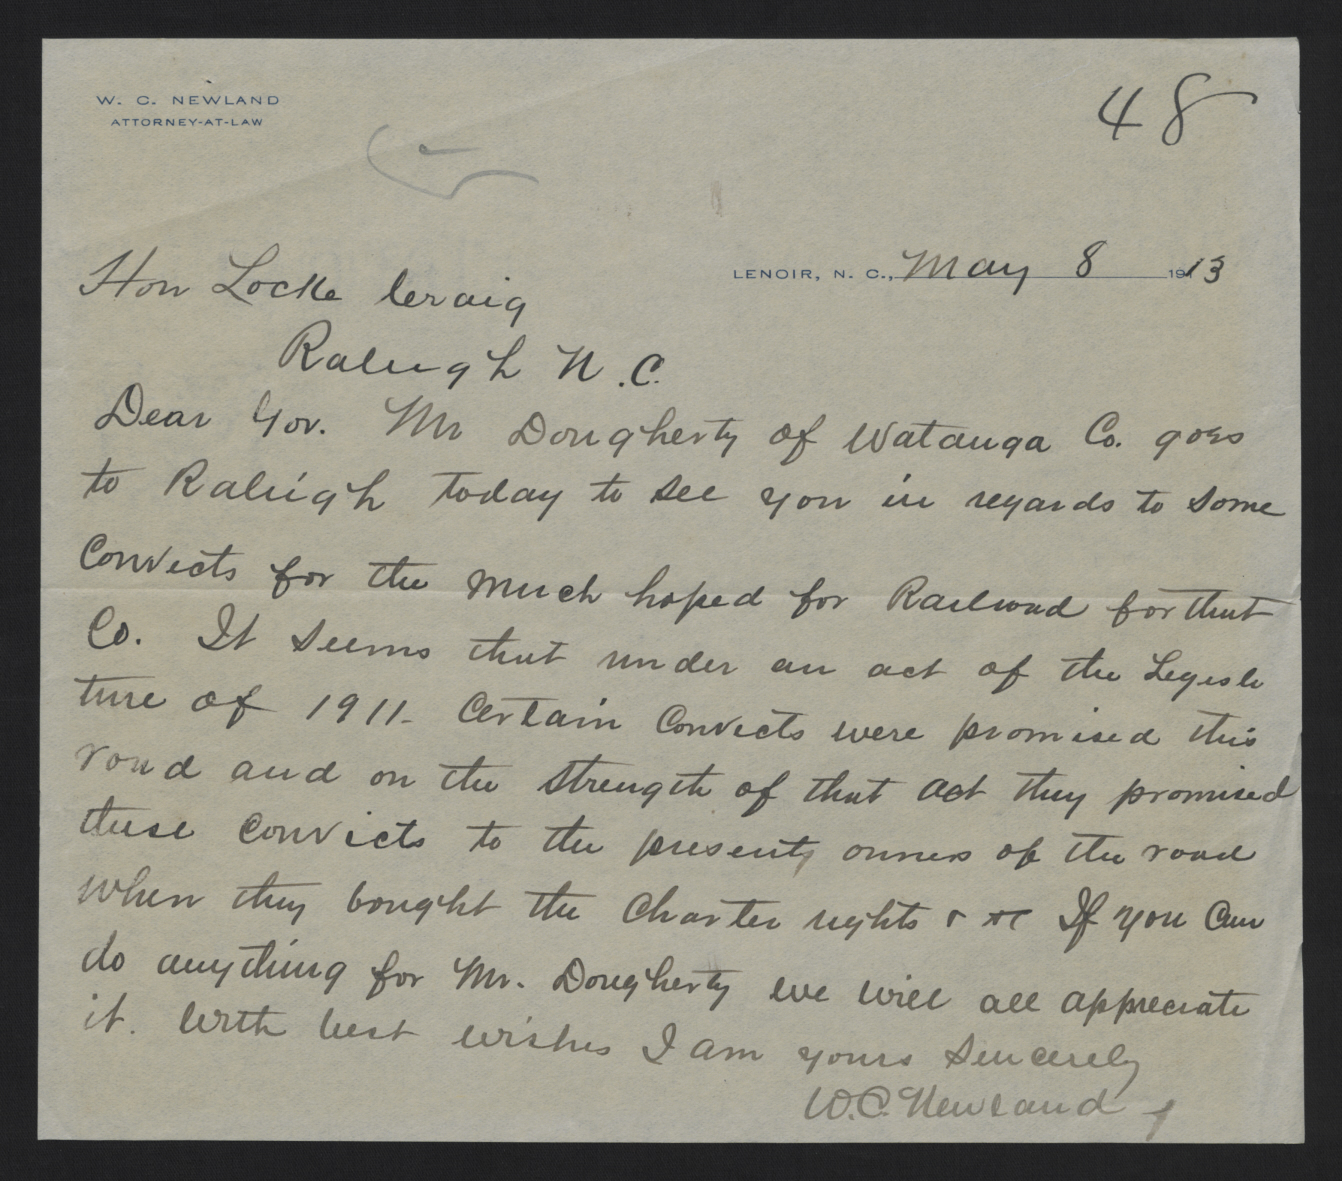 W. C. NEWLAND
ATTORNEY-AT-LAW
48
LENOIR, N. C., May 8 1913
Hon Locke Craig
Raleigh N.C.
Dear Gov. Mr Dougherty of Watauga Co. goes
to Raleigh today to see you in regards to some
Convicts for the much hoped for Railroad for that
Co. It seems that under an act of the Legisla
ture of 1911. Certain Convicts were promised this
road and on the strength of that act they promised
these convicts to the present owners of the road
when they bought the Charter rights & &c If you can
do anything for Mr. Dougherty we will all appreciate
it. With best wishes I am yours sincerely
W.C. Newland